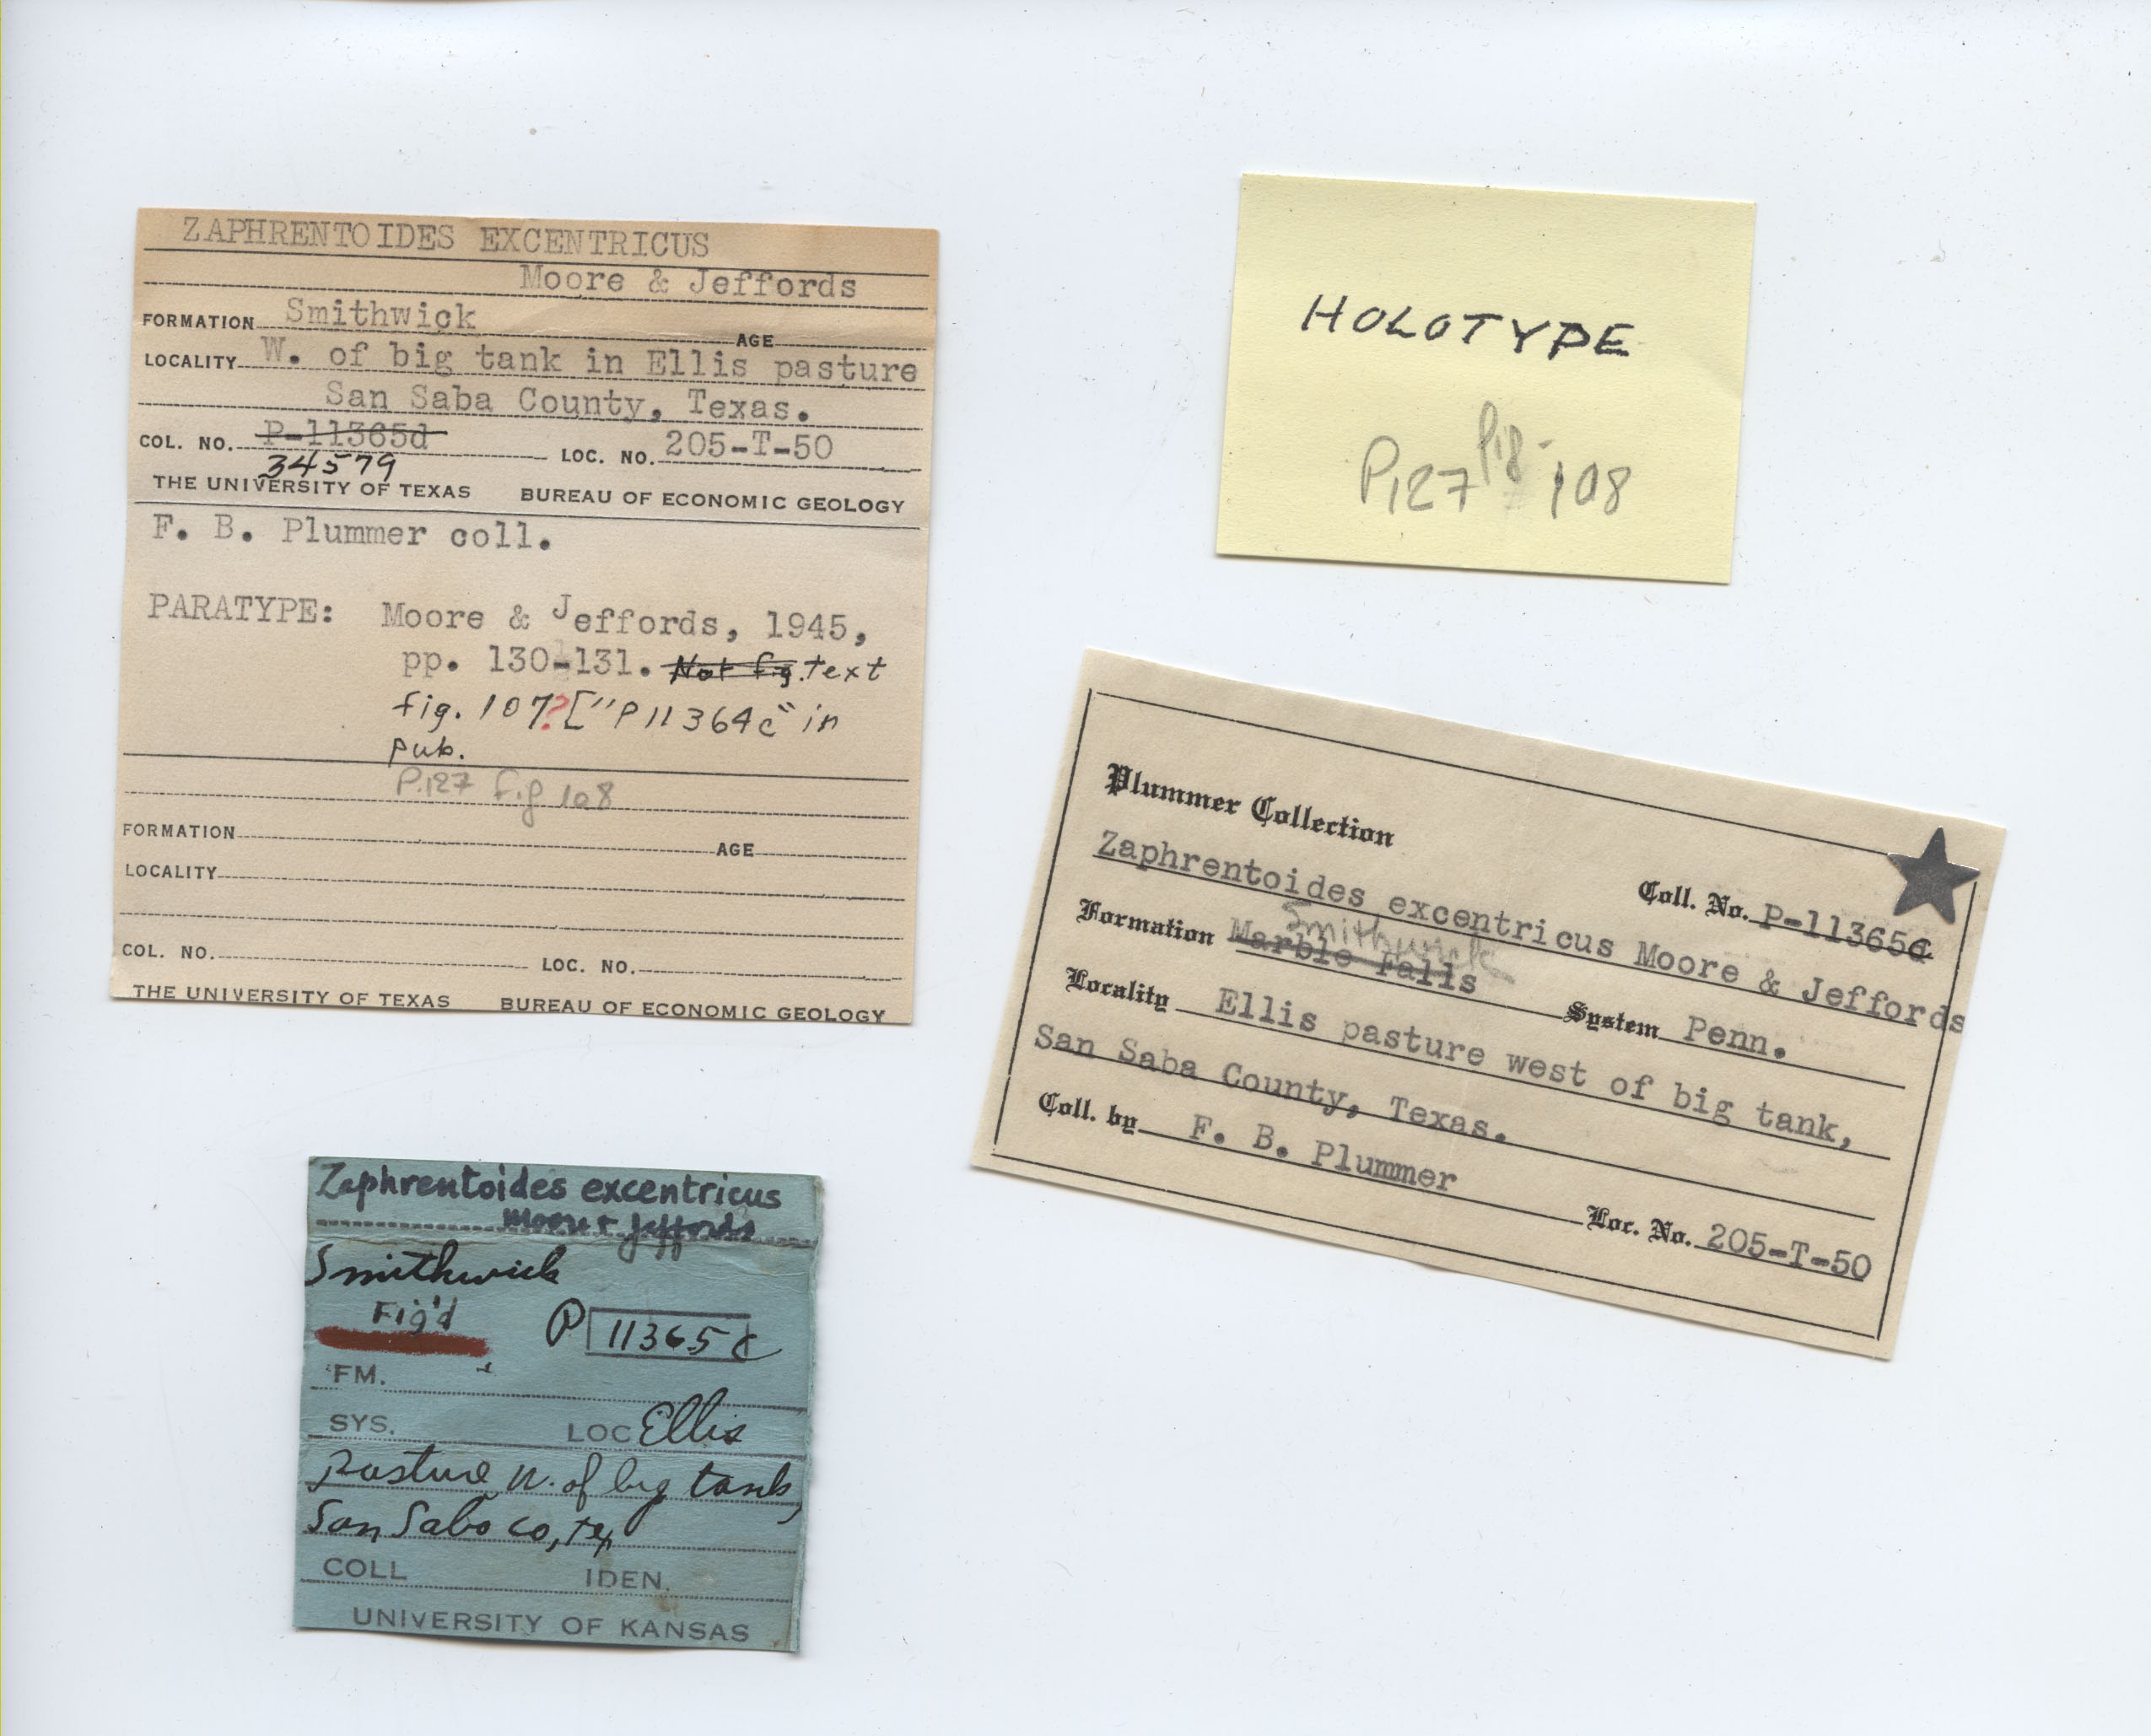 ZAPHRENTOIDES EXCENTRICUS
Moore & Jeffords
FORMATION Smithwick AGE
LOCALITY W. of big tank in Ellis pasture
San Saba County, Texas.
COL. NO. P-11365d LOC. NO. 205-T-50
34579
THE UNIVERSITY OF TEXAS BUREAU OF ECONOMIC GEOLOGY
F. B. Plummer coll.
PARATYPE: Moore & Jeffords, 1945,
pp. 130-131. Not fig. text
fig. 107? ["P11364c" in
pub.
P.127 fig 108
FORMATION AGE
LOCALITY
COL. NO. LOC. NO.
THE UNIVERSITY OF TEXAS BUREAU OF ECONOMIC GEOLOGY
HOLOTYPE
P.127 fig. 108
Plummer Collection
Coll. No. P-11365
Zaphrentoides excentricus Moore & Jeffords
Smithwick
Formation Marble Falls System Penn.
Locality Ellis pasture west of big tank,
San Saba County, Texas.
Coll. by F. B. Plummer
Loc. No. 205-T-50
Zaphrentoides excentricus
Moore + Jeffords
Smithwick
Fig'd P 11365c
FM.
SYS. LOC Ellis
Pasture W. of big tank,
San Saba Co, Tex
COLL IDEN.
UNIVERSITY OF KANSAS